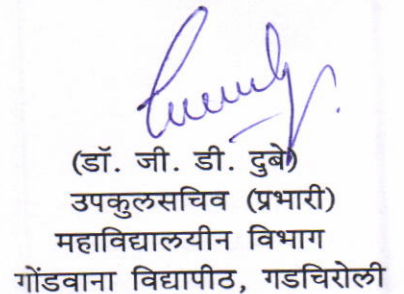 (डॉ. जी. डी. दुबे)
उपकुलसचिव (प्रभारी)
महाविद्यालयीन विभाग
गोंडवाना विद्यापीठ, गडचिरोली